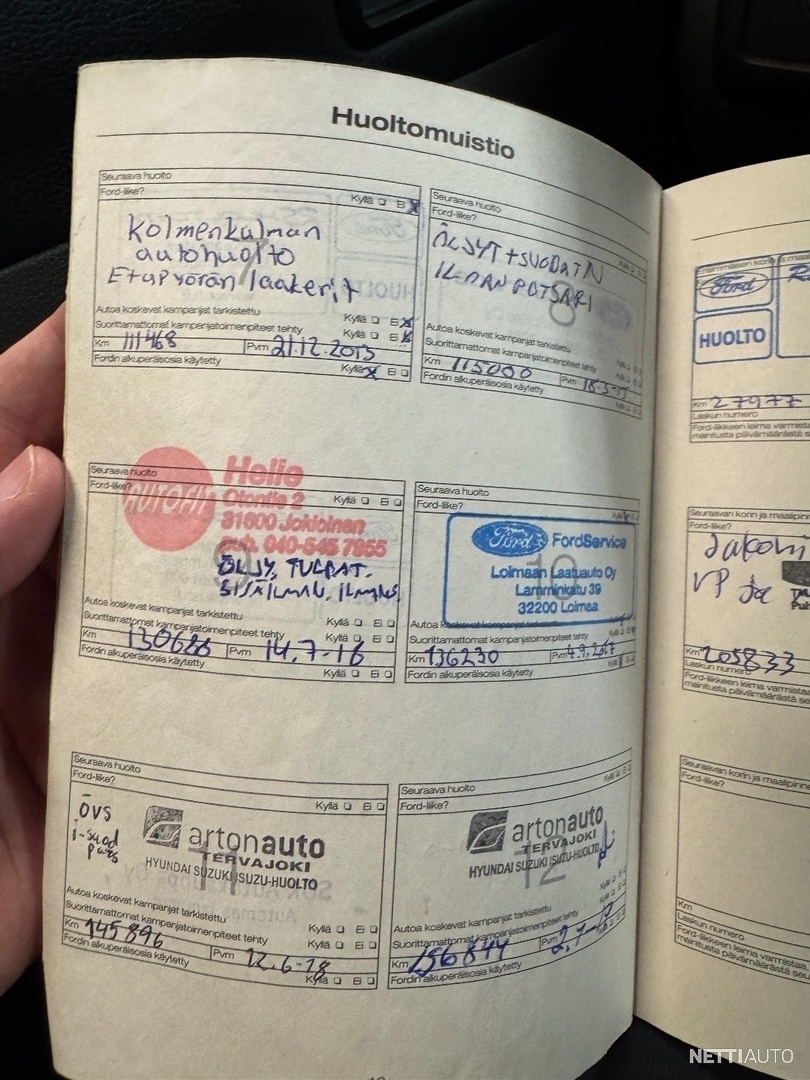 Huoltomuistio
Seuraava huolto
Ford-liike?
Kyllä Ei
Kolmenkulman
autohuolto
Etupyörän laakerit
Autoa koskevat kampanjat tarkistettu
Kyllä Ei
Suorittamattomat kampanjatoimenpiteet tehty
Kyllä Ei
Km 111468
Pvm 21.12.2013
Fordin alkuperäisosia käytetty
Kyllä Ei
Seuraava huolto
Ford-liike?
7
8
ÖLJYT + SUODATIN
ILMANPUTSARI
Autoa koskevat kampanjat tarkistettu
Suorittamattomat kampanjatoimenpiteet tehty
Km 115000
Pvm
Fordin alkuperäisosia käytetty
Seuraava huolto
Ford-liike?
Kyllä Ei
AUTOFIT
Helio
Otontie 2
31600 Jokioinen
puh. 040-545 7955
9
ÖLJY, TULPAT,
SISÄILMAN, ILMANS.
Autoa koskevat kampanjat tarkistettu
Kyllä Ei
Suorittamattomat kampanjatoimenpiteet tehty
Kyllä Ei
Km 130686
Pvm 14.7-16
Fordin alkuperäisosia käytetty
Kyllä Ei
Seuraava huolto
Ford-liike?
Ford FordService
10
Loimaan Laatuauto Oy
Lamminkatu 39
32200 Loimaa
Autoa koskevat kampanjat tarkistettu
Suorittamattomat kampanjatoimenpiteet tehty
Km 136230
Pvm 4.9.2017
Fordin alkuperäisosia käytetty
Seuraava huolto
Ford-liike?
Kyllä Ei
ÖVS
i-suod
artonauto
TERVAJOKI
HYUNDAI SUZUKI ISUZU-HUOLTO
11
Autoa koskevat kampanjat tarkistettu
Kyllä Ei
Suorittamattomat kampanjatoimenpiteet tehty
Kyllä Ei
Km 145896
Pvm 12.6-18
Fordin alkuperäisosia käytetty
Kyllä Ei
Seuraava huolto
Ford-liike?
artonauto
TERVAJOKI
HYUNDAI SUZUKI ISUZU-HUOLTO
12
Autoa koskevat kampanjat tarkistettu
Suorittamattomat kampanjatoimenpiteet tehty
Km 156844
Pvm 2.7-19
Fordin alkuperäisosia käytetty
Ford
HUOLTO
Km 27977
Laskun numero
Ford-liikkeen leima varmista
mainitusta päivämäärästä
Seuraavan korin ja maalipinn
Ford-liike?
VP
Km 205833
Laskun numero
Ford-liikkeen leima varmista
mainitusta päivämäärästä se
Seuraavan korin ja maalipinn
Ford-liike?
Km
Laskun numero
Ford-liikkeen leima varmistaa,
mainitusta päivämäärästä
NETTIAUTO